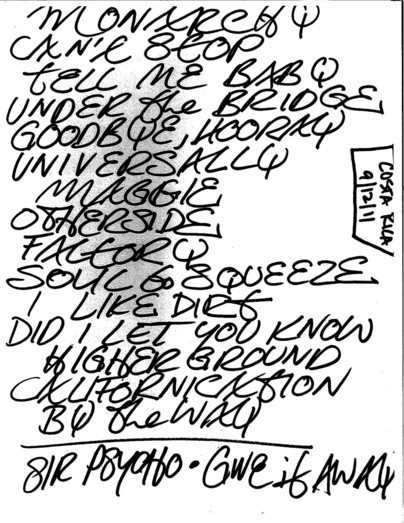 MONARCHY
CAN'T STOP
TELL ME BABY
UNDER the BRIDGE
GOODBYE, HOORAY
UNIVERSALLY
MAGGIE
OTHERSIDE
FACTORY
SOUL to SQUEEZE
I LIKE DIRT
DID I LET YOU KNOW
HIGHER GROUND
CALIFORNICATION
BY the WAY
SIR PSYCHO • GIVE it AWAY
COSTA RICA
9/12/11